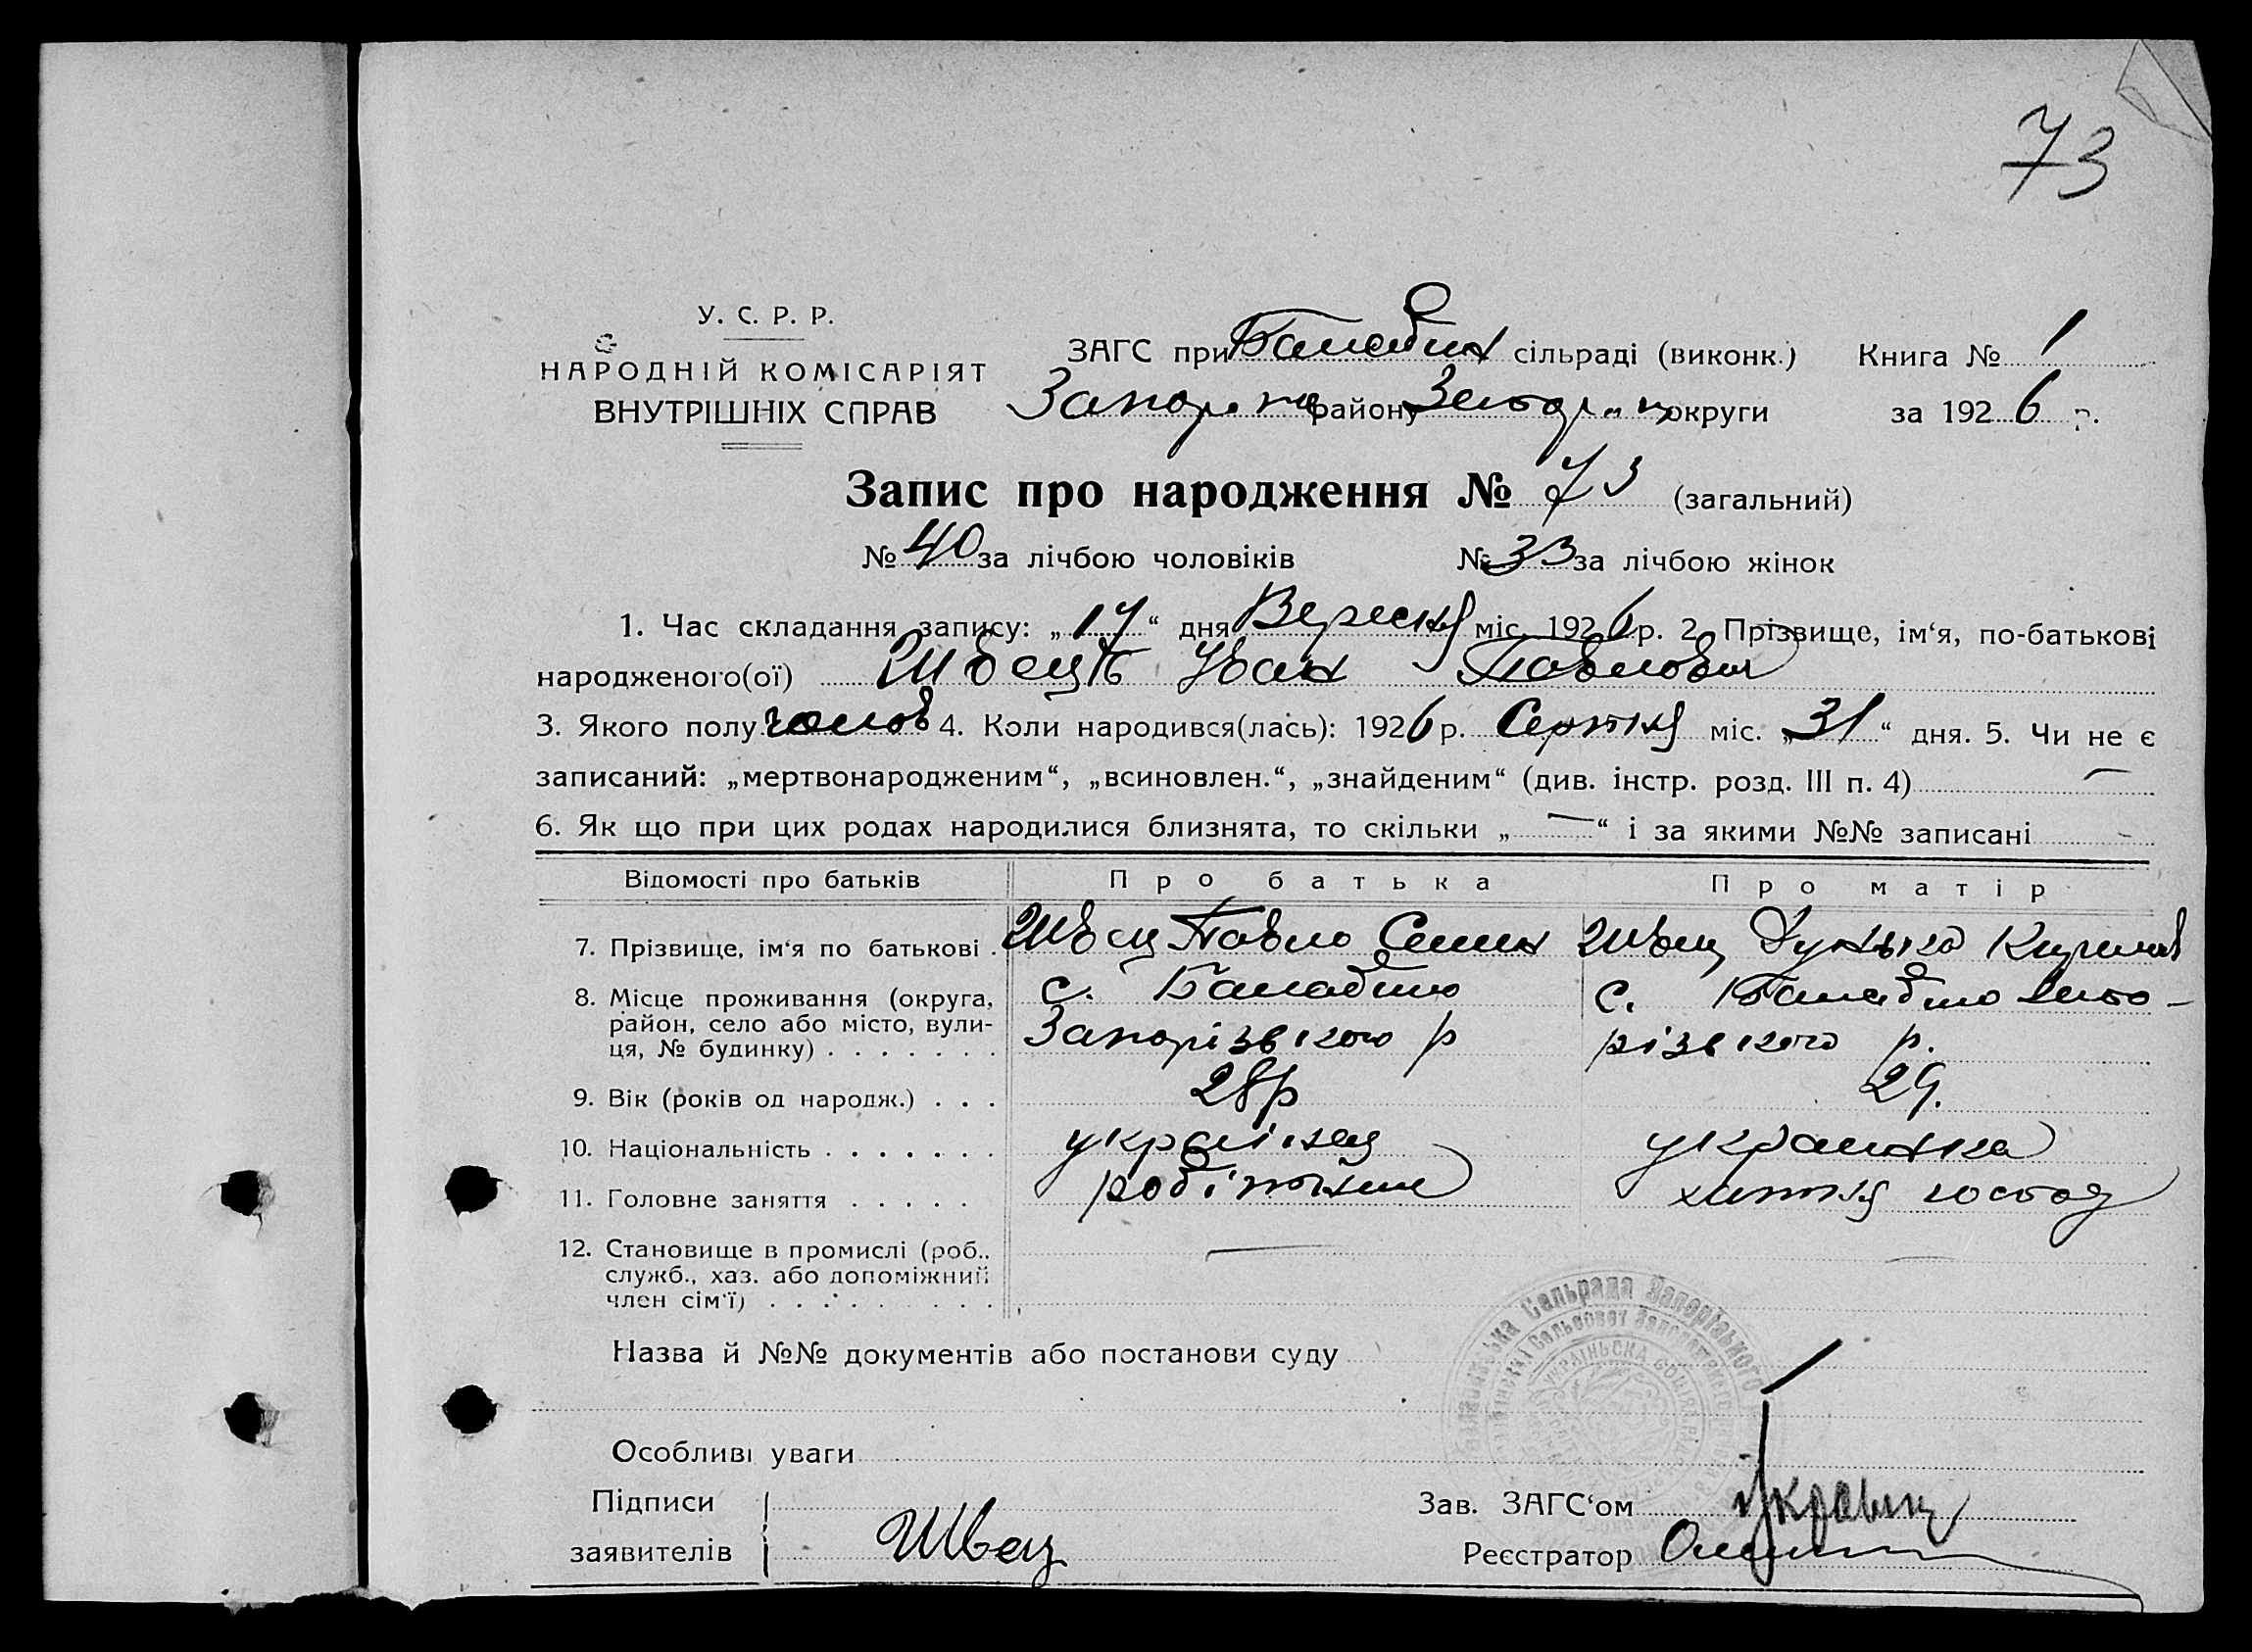 73
У. С. Р. Р.
НАРОДНІЙ КОМІСАРІЯТ
ВНУТРІШНІХ СПРАВ
ЗАГС при Балабин сільраді (виконк.) Книга № 1
Запоріз району Запоріз округи за 1926 р.
Запис про народження № 73 (загальний)
№ 40 за лічбою чоловіків № 33 за лічбою жінок
1. Час складання запису: „17“ дня Вересня міс. 1926 р. 2. Прізвище, ім‘я, по-батькові
народженого(ої) Швець Іван Павлович
3. Якого полу чолов 4. Коли народився(лась): 1926 р. Серпня міс. „31“ дня. 5. Чи не є
записаний: „мертвонародженим“, „всиновлен.“, „знайденим“ (див. інстр. розд. III п. 4) —
6. Як що при цих родах народилися близнята, то скільки „—“ і за якими №№ записані -
Відомості про батьків Про батька Про матір
7. Прізвище, ім‘я по батькові . Швец Павло Семен Швец Дунька Кирилов
8. Місце проживання (округа, с. Балабино с. Балабино Запо-
район, село або місто, вули- Запорізького р різького р.
ця, № будинку) . . . . . . .
9. Вік (років од народж.) . . . 28р 29.
10. Національність . . . . . . . українец украинка
11. Головне заняття . . . . . робітник хатня господ
12. Становище в промислі (роб., — —
служб., хаз. або допоміжний
член сім‘ї) . . . . . . . . .
Назва й №№ документів або постанови суду
Сельрада Запорізького
Сельсовет
УКРАЇНЬСКА СОЦІЯЛІ
Особливі уваги
Підписи Зав. ЗАГС‘ом
заявителів Швец Реєстратор